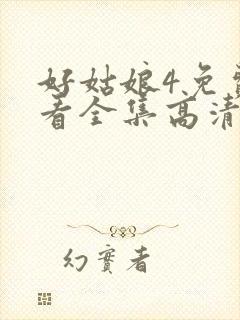 好姑娘4免费
看全集高清
幻實者